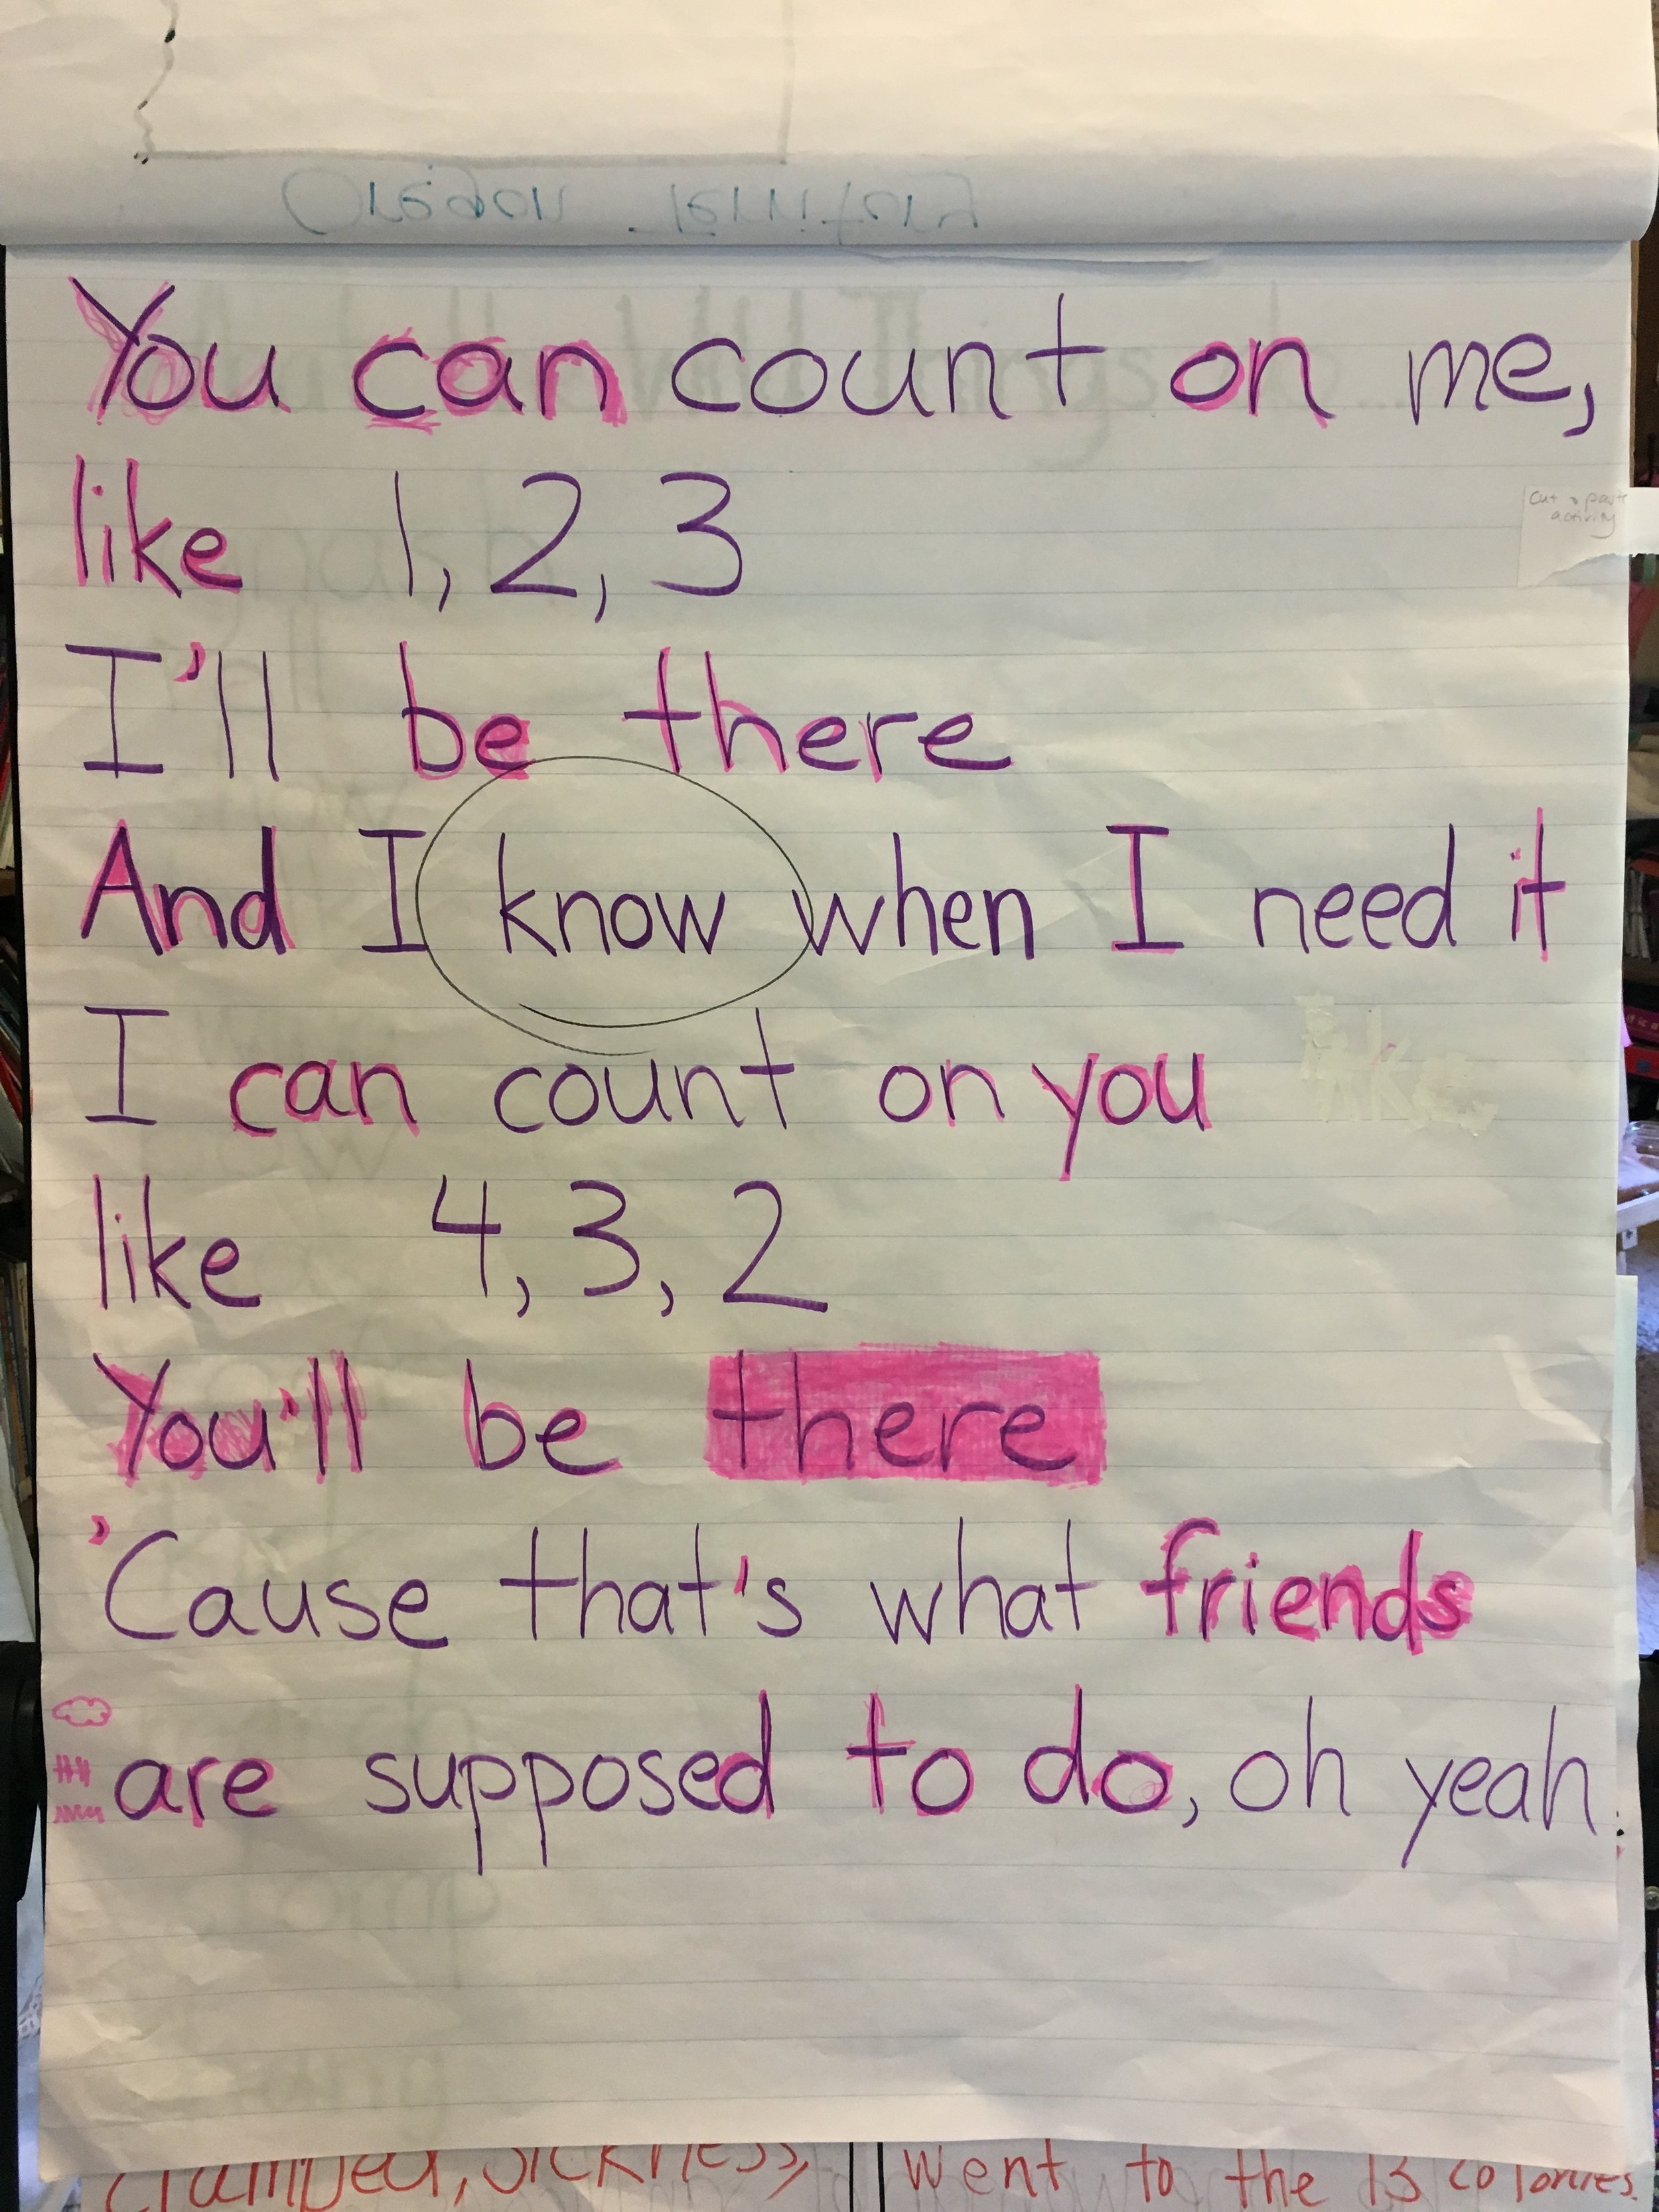 Oregon Territory
You can count on me,
like 1, 2, 3
cut & paste
activity
I'll be there
And I know when I need it
I can count on you
like 4, 3, 2
You'll be there
'Cause that's what friends
are supposed to do, oh yeah.
sickness,
went to the 13 colonies